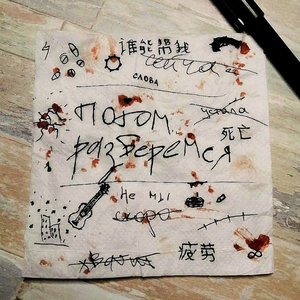 谁能帮我
сейчас
слова
устала
死亡
потом
разберемся
Не мы
скоро
疲劳